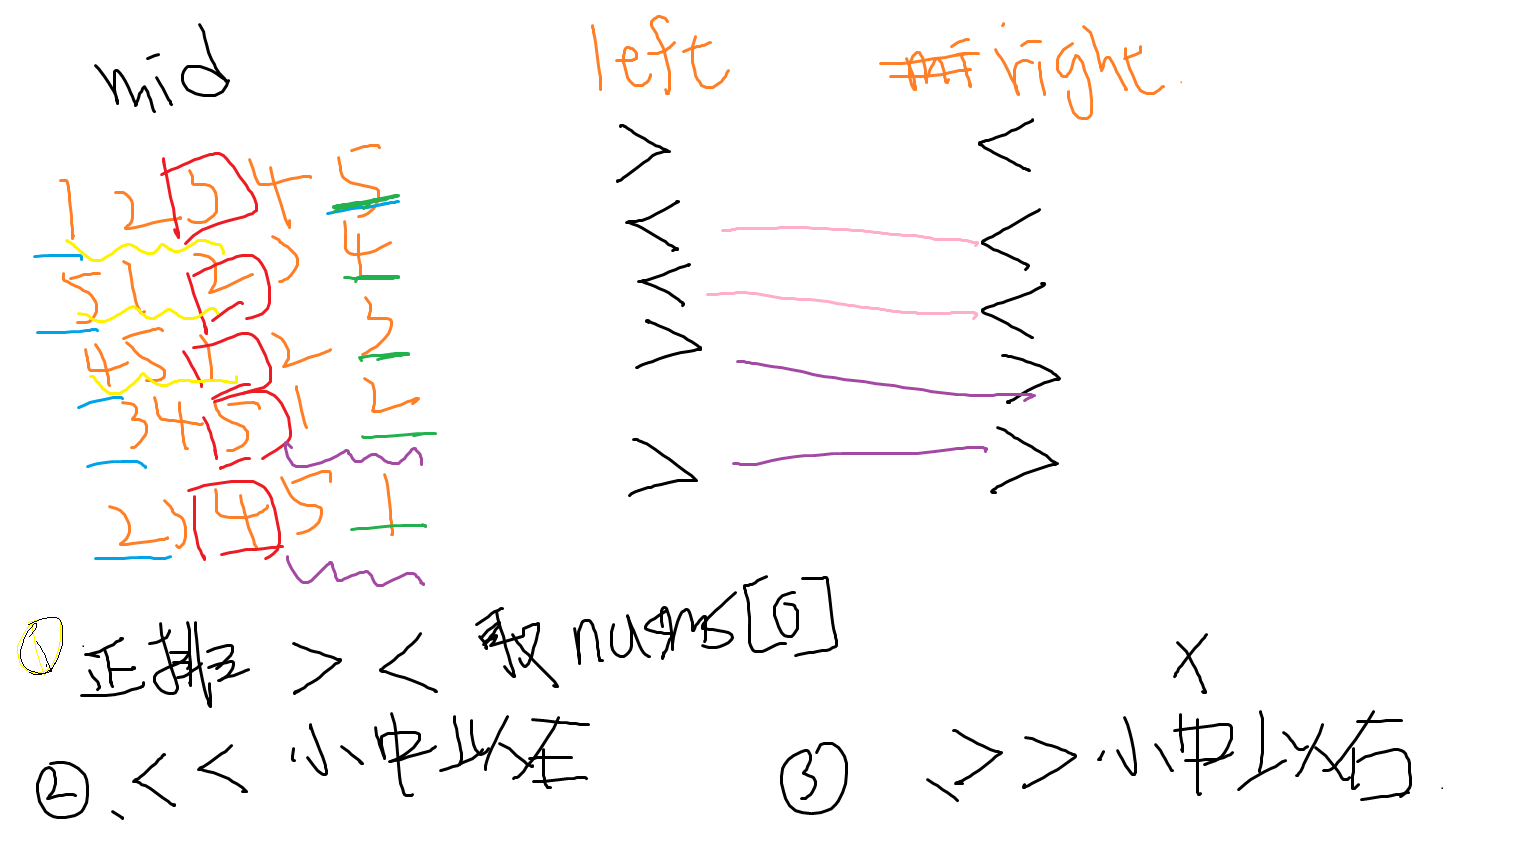 mid left right
> <
1 2 3 4 5
< <
5 1 2 3 4
< <
4 5 1 2 3
> >
3 4 5 1 2
> >
2 3 4 5 1
① 正排 > < 取 nums[0]
x
② < < 小中以左 ③ > > 小中以右